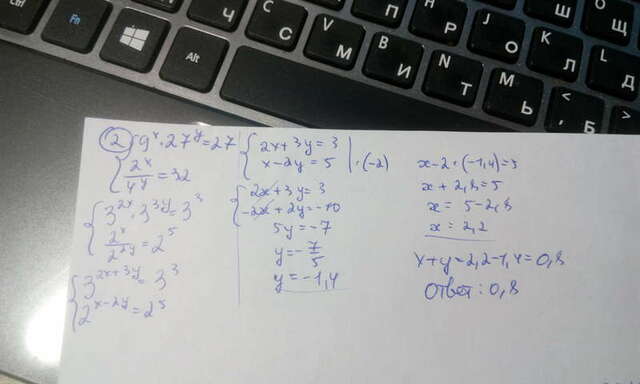 Ctrl
Fn
Alt
Ч
C
С
V
М
B
И
N
Т
M
Ь
J
О
K
Л
L
Д
<
Б
>
Ш
Щ
② { 9ˣ · 27ʸ = 27
2ˣ/4ʸ = 32
{ 3²ˣ · 3³ʸ = 3³
2ˣ/2²ʸ = 2⁵
{ 3²ˣ⁺³ʸ = 3³
2ˣ⁻²ʸ = 2⁵
{ 2x + 3y = 3
x - 2y = 5 | · (-2)
{ 2x + 3y = 3
-2x + 2y = -10
5y = -7
y = - 7/5
y = -1,4
x - 2 · (-1,4) = 5
x + 2,8 = 5
x = 5 - 2,8
x = 2,2
x + y = 2,2 - 1,4 = 0,8
Ответ: 0,8